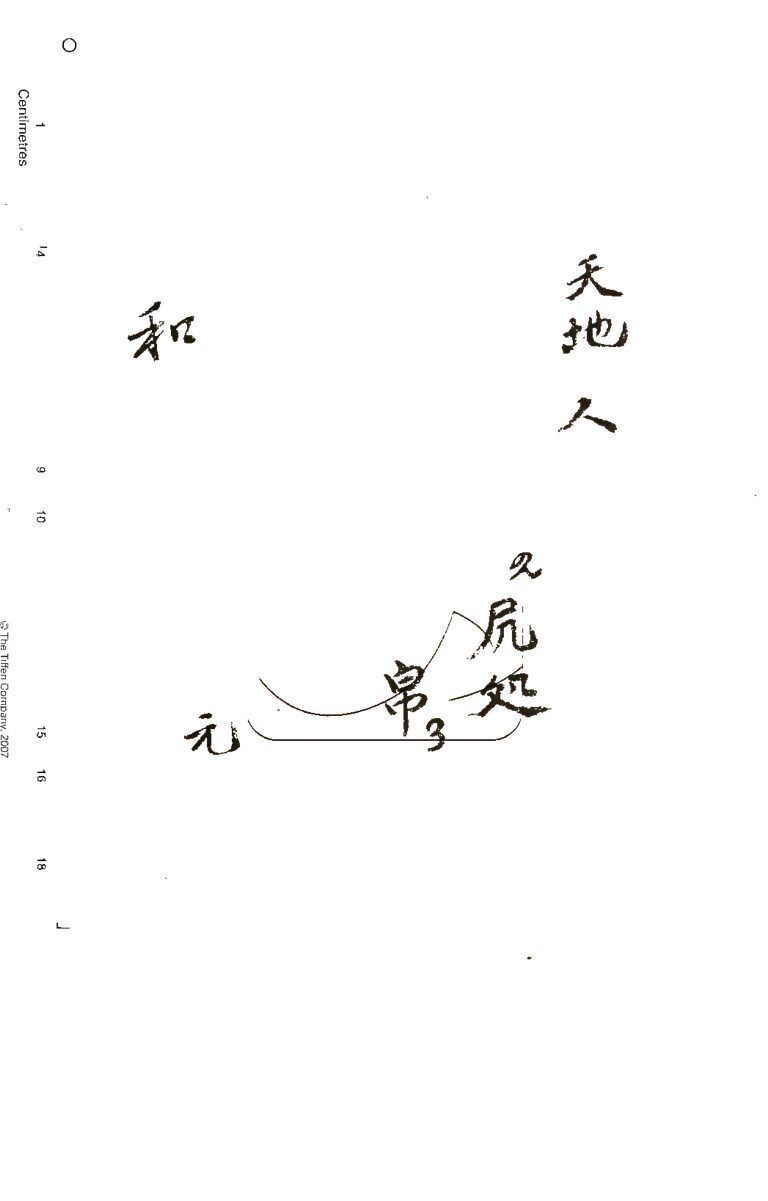 天地人
の
尻
处
帛
ろ
元
和
Centimetres
1
4
9
10
15
16
18
© The Tiffen Company, 2007